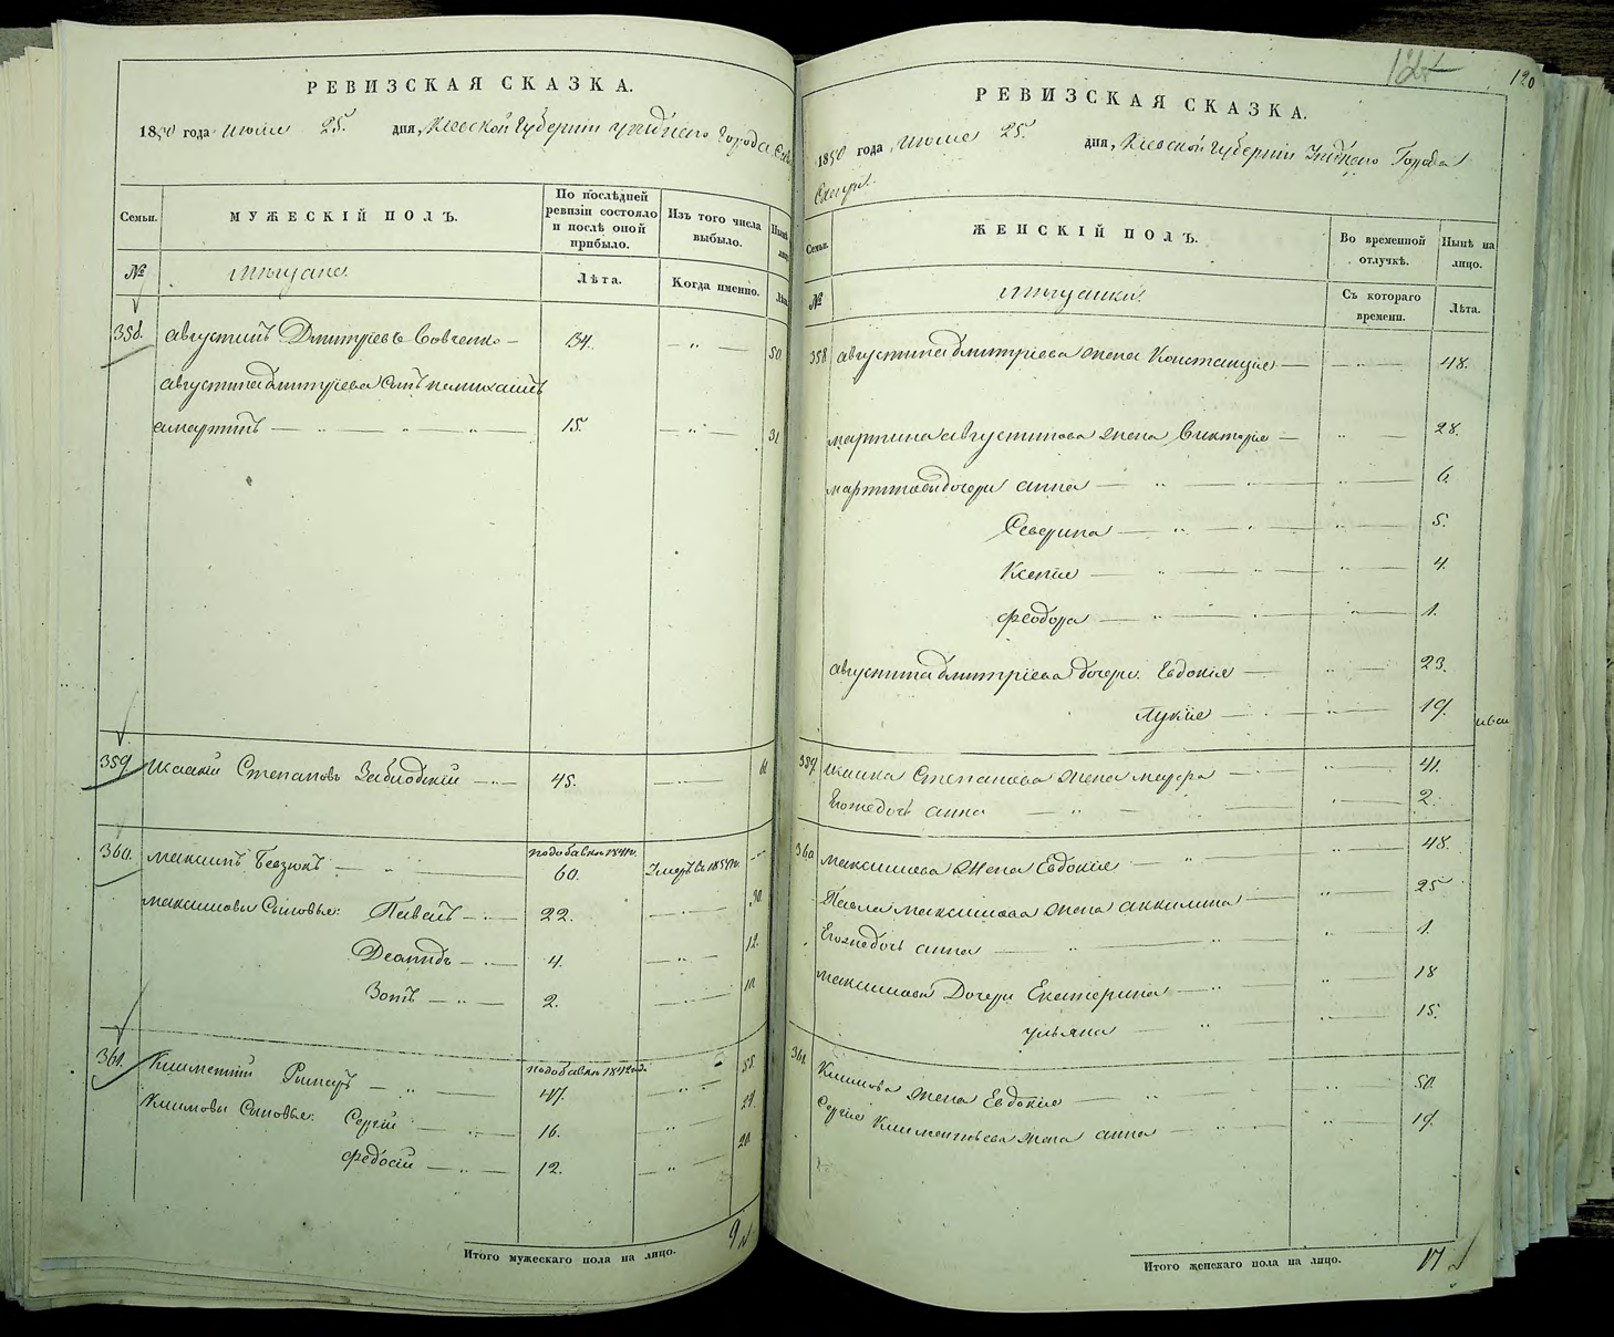 РЕВИЗСКАЯ СКАЗКА.
1850 года июля 25. дня, Киевской Губернии уѣзднаго Города
Семьи. МУЖЕСКІЙ ПОЛЪ. По послѣдней ревизіи состояло и послѣ оной прибыло. Изъ того числа выбыло.
№ мѣщане. Лѣта. Когда именно. Лѣта
358. Августинъ Дмитріевъ Вовченко — 34. — " — 50
Августина Дмитріева сынъ
Мартинъ — " — " — " — 15. — " — 31
359 Степановъ Заблодскій — " — 45. — " — 61
360. Максимъ Безюкъ — " — по добавкѣ 1841 г. 60. Умеръ въ г. — " —
Максимовы Сыновья: Павелъ — " — 22. — " — 30.
Деомидъ — " — 4. — " — 12.
Зотъ — " — 2. — " — 10
361. Климентій Рымаръ — " — по добавкѣ 1842 год. 47. — " — 55.
Климовы Сыновья: Сергій — " — 16. — " — 24.
Федосій — " — 12. — " — 20.
Итого мужескаго пола на лицо. 9
127
120
РЕВИЗСКАЯ СКАЗКА.
1850 года июля 25. дня, Киевской Губерніи Уѣзднаго Города
Сквиры.
Семьи. ЖЕНСКІЙ ПОЛЪ. Во временной отлучкѣ. Нынѣ на лицо.
№ мѣщанки. Съ котораго времени. Лѣта.
358 Августина Дмитріева жена Констанція — — " — 48.
Мартина Августинова жена Викторія — " — 28.
Мартина дочери Анна — " — " — 6.
Северина — " — " — 5.
Ксенія — " — " — 4.
Феодора — " — " — 1.
Августина Дмитріева дочери. Евдокія — " — 23.
Лукія — " — 19.
359 Степанова жена Мавра — " — 41.
Его же дочь Анна — " — 2.
360 Максимова Жена Евдокія — " — 48.
Павла Максимова жена Акилина — " — 25
Его же дочь Анна — " — " — 1.
Максимова Дочери Екатерина — " — 18
Ульяна — " — 15.
361. Климова жена Евдокія — " — 50.
Сергія Климентьева жена Анна — " — 19.
Итого женскаго пола на лицо. 17